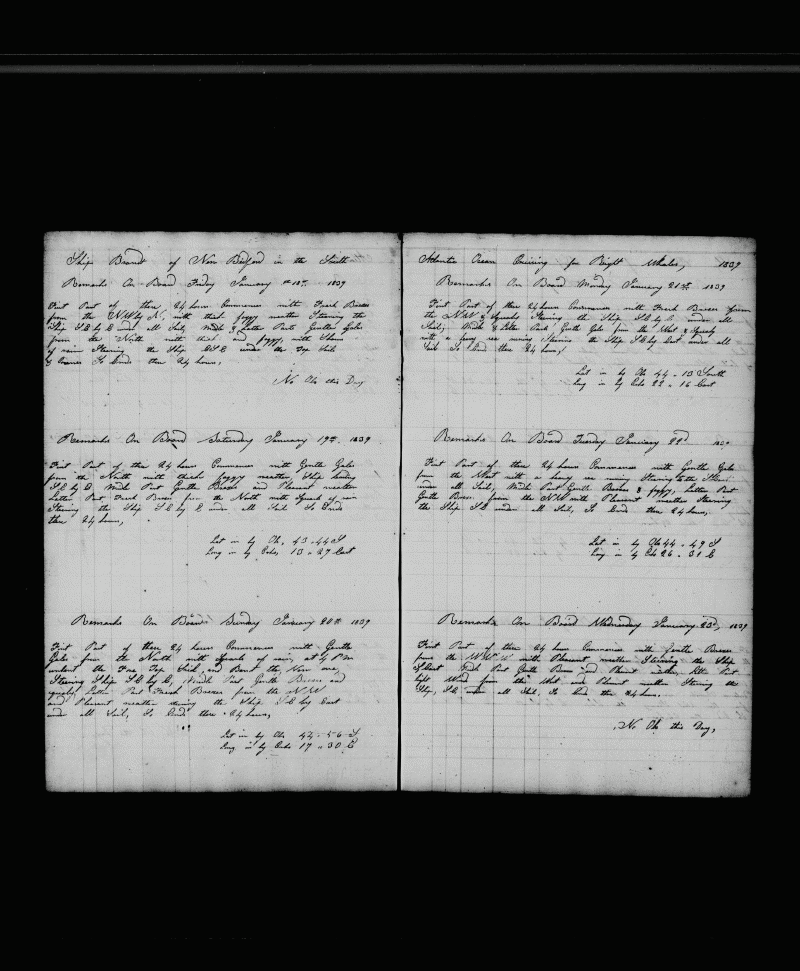 Ship Brandt of New Bedford in the South
Remarks On Board Friday January 18th 1839
First Part of these 24 hours Commences with Fresh Breeze
from the NW by N, with thick foggy weather Steering the
Ship S E by E under all Sail, Middle & Latter Parts Gentle Gales
from the North with thick and foggy, with Showers
of rain Steering the Ship ESE under the Top Sails
& Courses So Ends these 24 hours,
No Obs this Day
Remarks On Board Saturday January 19th 1839
First Part of these 24 hours Commences with Gentle Gales
from the North with thick foggy weather, Ship heading
S E by E Middle Part Gentle Breeze and Pleasant weather
Latter Part Fresh Breeze from the North with Squals of rain
Steering the Ship S E by E under all Sail So Ends
these 24 hours,
Lat in by Obs, 43 - 44 S
Long in by Cro, 13 - 27 East
Remarks On Board Sunday January 20th 1839
First Part of these 24 hours Commences with Gentle
Gales from the North with Squals of rain, at 4 P M
unbent the Fore Top Sail, and Bent the New one,
Steering Ship S E by E, Middle Part Gentle Breeze and
squaly Latter Part Fresh Breezes from the N W
and Pleasant weather steering the Ship S E by East
under all Sail, So Ends these 24 hours,
Lat in by Obs 44 - 56 S
Long in by Cro 17 - 30 E
Atlantic Ocean Cruising for Right Whales, 1839
Remarks On Board Monday January 21st 1839
First Part of these 24 hours Commences with Fresh Breeze from
the N W & Squaly Steering the Ship S E by E under all
Sail, Middle & Latter Part Gentle Gales from the West & Squaly
with a heavy sea running Steering the Ship S E by East under all
Sail So Ends these 24 hours,
Lat in by Obs 44 - 13 South
Long in by Cro 22 - 16 East
Remarks On Board Tuesday January 22d 1839
First Part of these 24 hours Commences with Gentle Gales
from the West with a heavy sea on Steering
under all Sail, Middle Part Gentle Breeze & foggy, Latter Part
Gentle Breeze from the N W with Pleasant weather Steering
the Ship S E under all Sail, So Ends these 24 hours,
Lat in by Obs 44 - 49 S
Long in by Cro 26 - 31 E
Remarks On Board Wednesday January 23d, 1839
First Part of these 24 hours Commences with Gentle Breeze
from the W N W with Pleasant weather Steering the Ship
S East Middle Part Gentle Breeze and Pleasant weather, Latter Part
light Wind from the West and Pleasant weather Steering the
Ship, S E under all Sail, So Ends these 24 hours.
No Obs this Day,